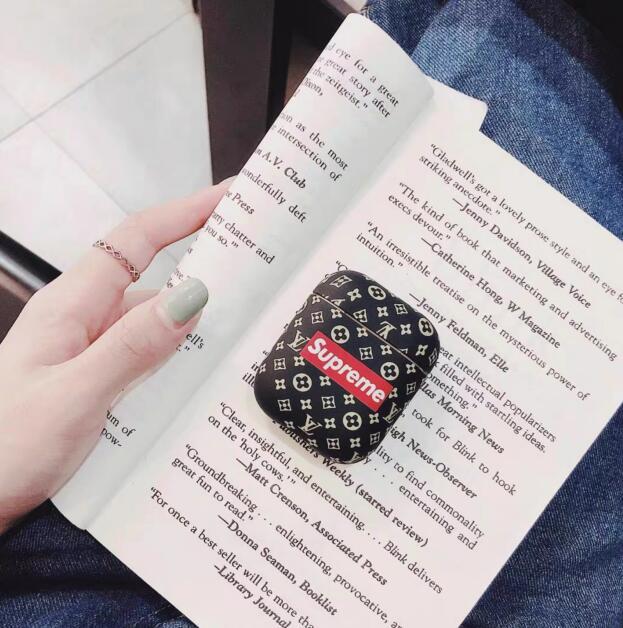 d eye for a great
great story after
the zeitgeist."
ison,
ion as the most
e intersection of
n A.V. Club
wonderfully deft
e Press
atty chatter and
ou so."
vell's
um of
pow-
"Gladwell's got a lovely prose style and an eye fo
striking anecdote."
—Jenny Davidson, Village Voice
"The kind of book that marketing and advertising
execs devour."
—Catherine Hong, W Magazine
"An irresistible treatise on the mysterious power of
intuition."
—Jenny Feldman, Elle
eat intellectual popularizers
k filled with startling ideas.
something."
las Morning News
took for Blink to hook
igh News-Observer
lity to find commonality
entertaining and
Weekly (starred review)
"Clear, insightful, and entertaining. . . . Blink delivers
on the 'holy cows.'"
—Matt Crenson, Associated Press
"Groundbreaking . . . enlightening, provocative, an
great fun to read."
—Donna Seaman, Booklist
"For once a best seller will be more tha
—Library Journal
Supreme
LV